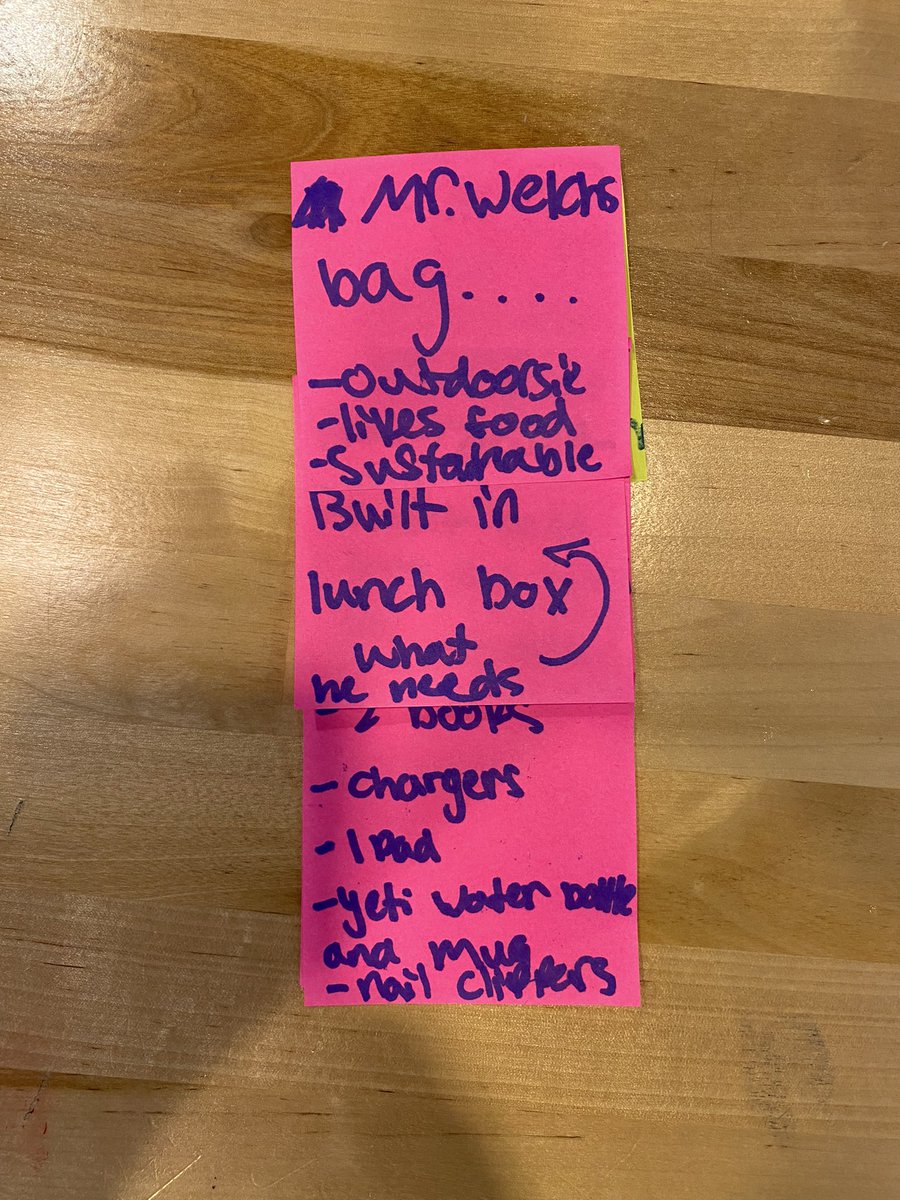 Mr. Welchs
bag....
-outdoorsie
-likes food
-Sustainable
Built in
lunch box
what
he needs
-2 books
-chargers
-IPad
-yeti water bottle
and mug
-nail clippers